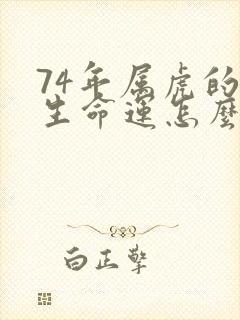 74年属虎的
生命运怎麽
白正擎